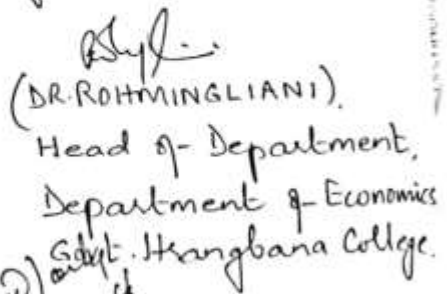 (DR. ROHMINGLIANI).
Head of Department,
Department of Economics
Govt. Hrangbana College.